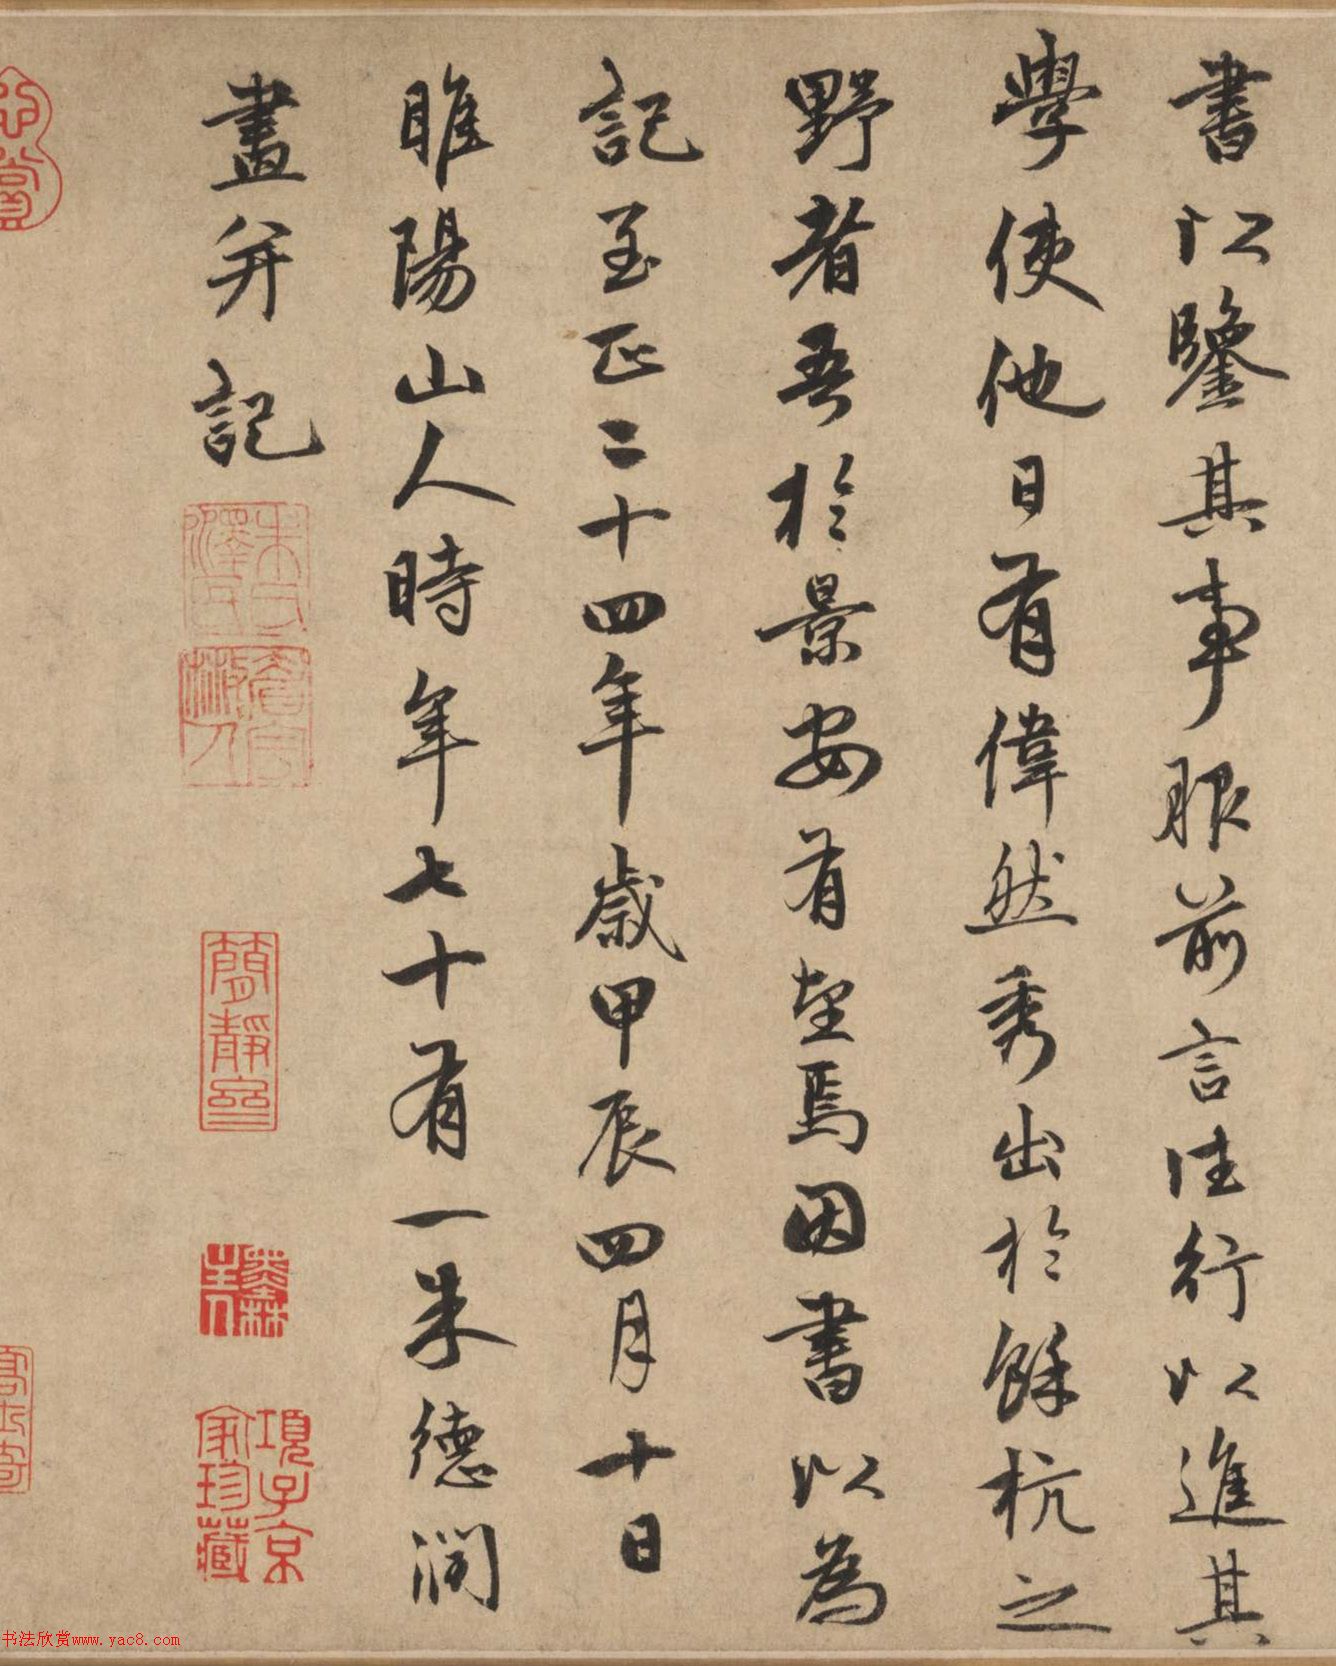 書以鑒其事眼前言往行以進其
學使他日有偉然秀出於餘杭之
野者吾於景安有望焉因書以為
記至正二十四年歲甲辰四月十日
睢陽山人時年七十有一朱德潤
畫并記
朱氏澤民
簡靜齋
項子京家珍藏
书法欣赏www.yac8.com